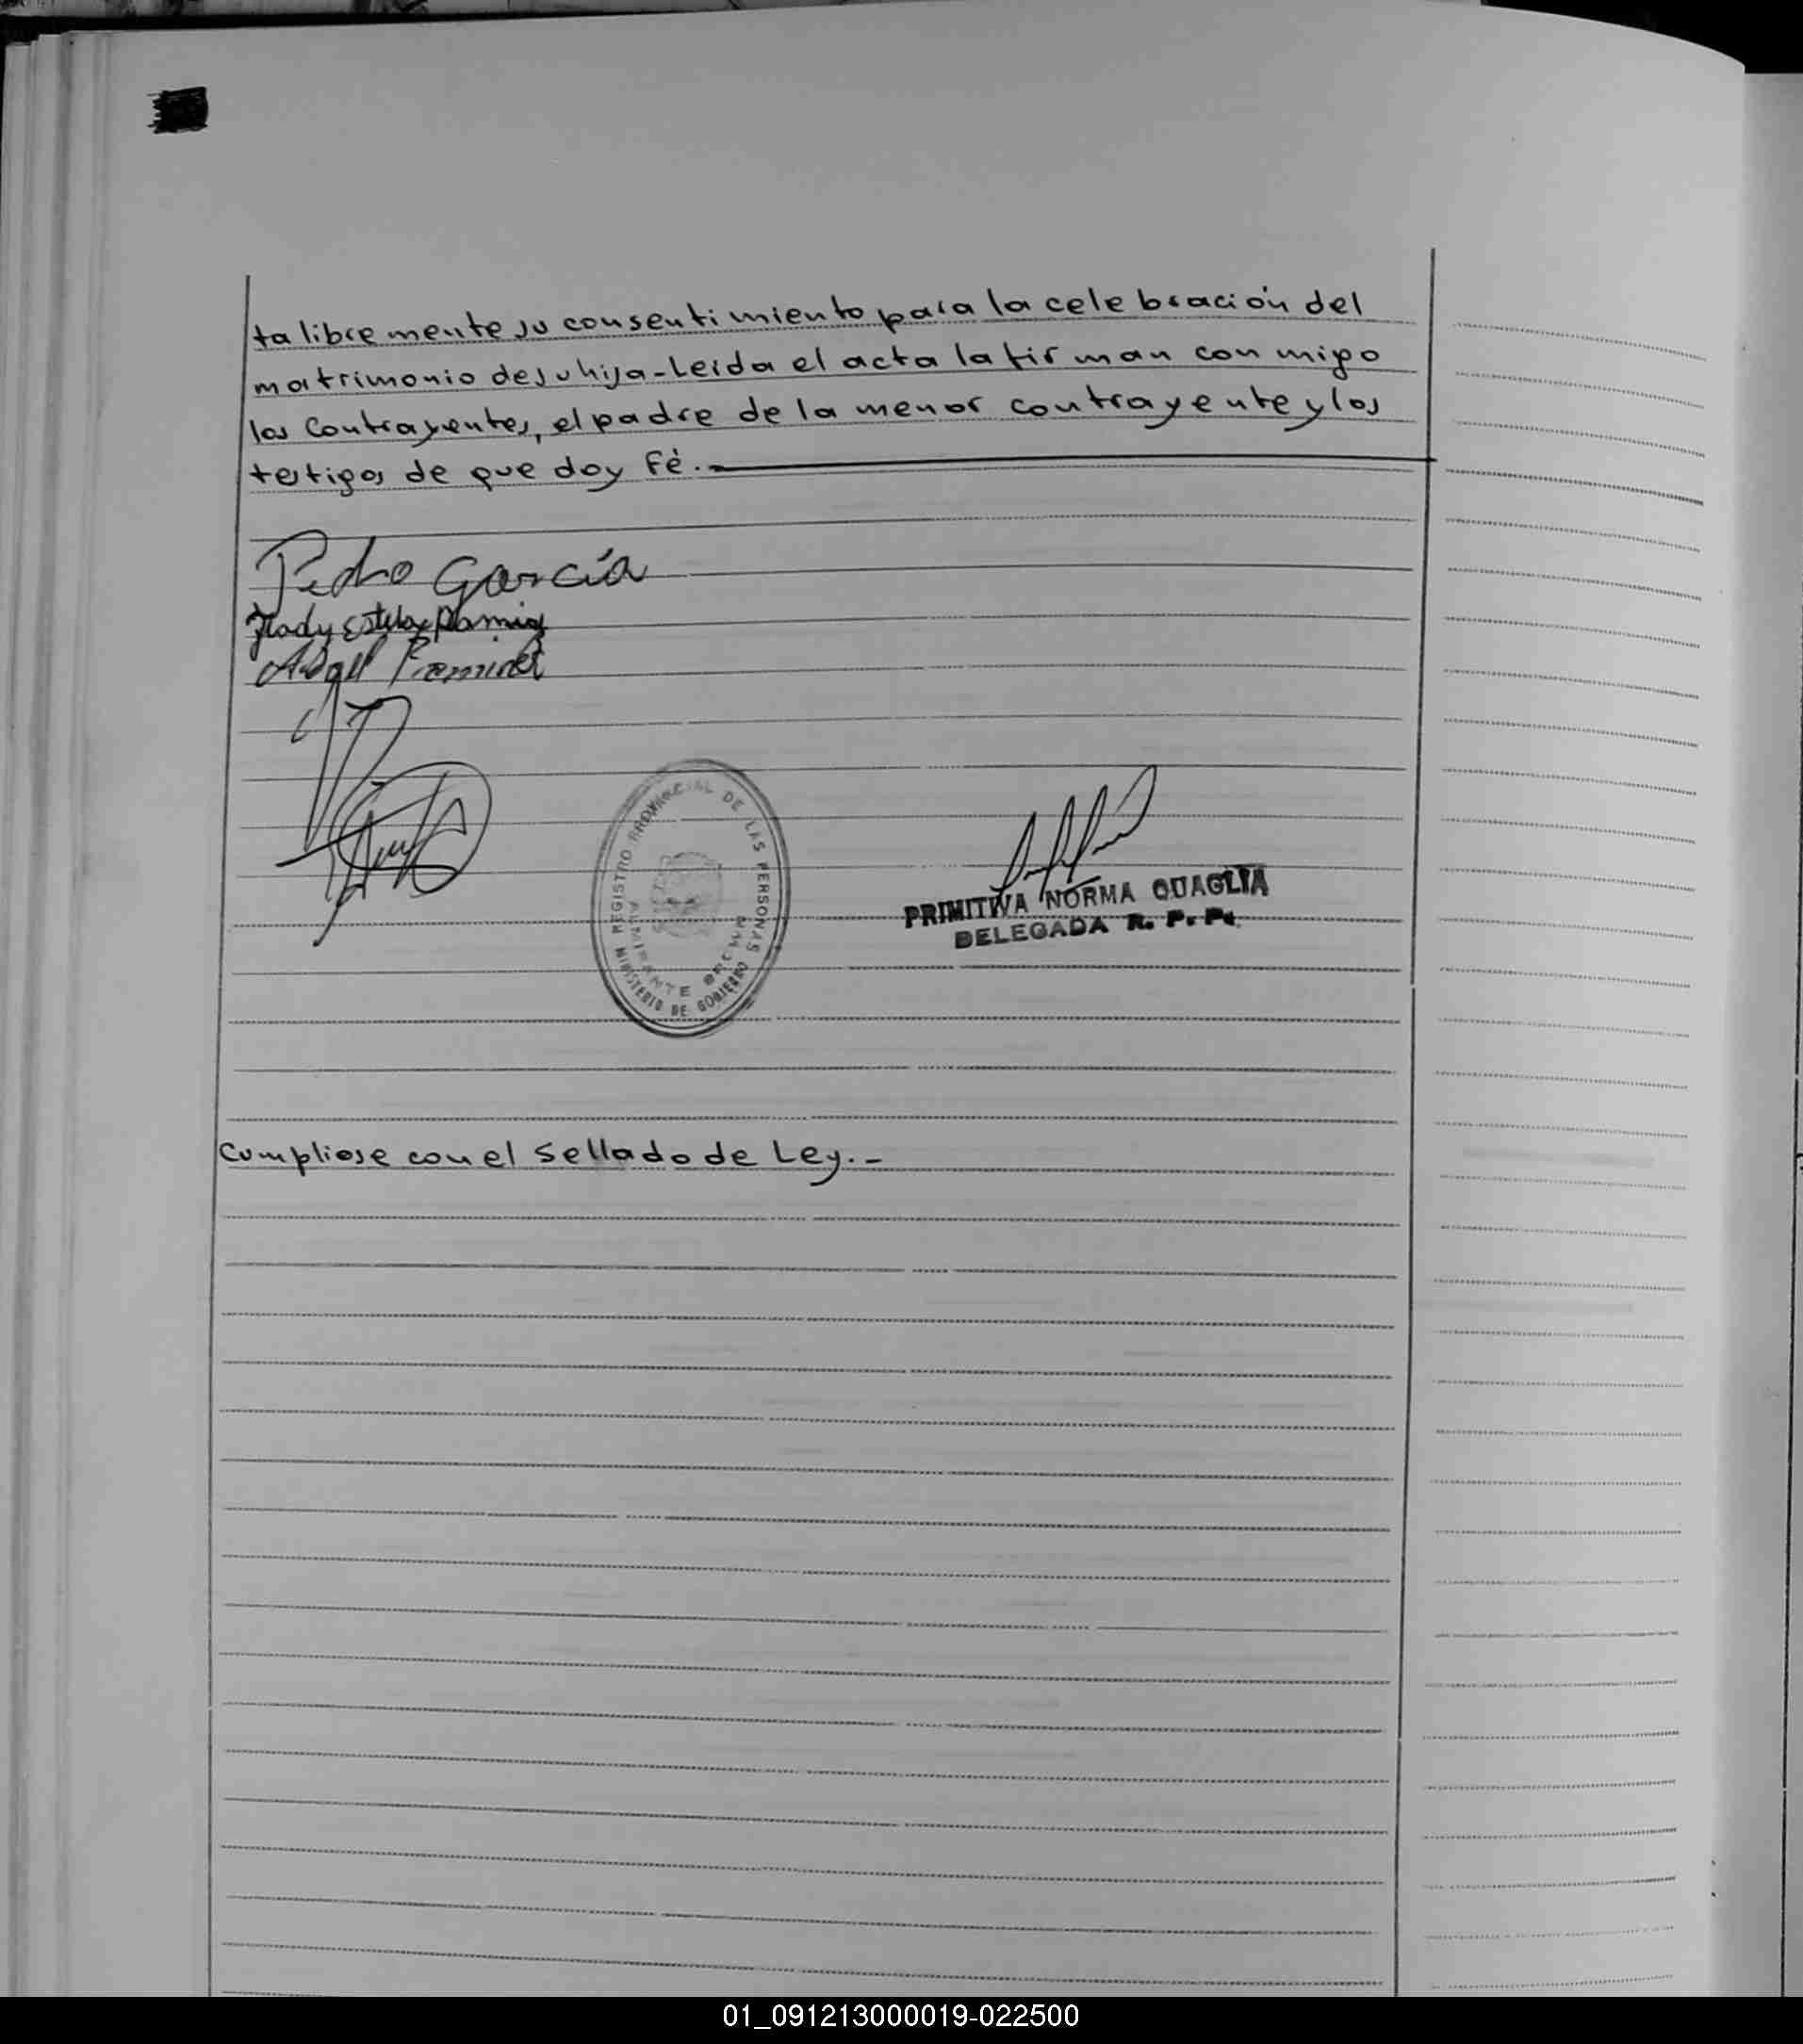 ta libremente su consentimiento para la celebración del
matrimonio de su hija - Leida el acta la firman conmigo
los Contrayentes, el padre de la menor contrayente y los
testigos de que doy Fé.-
Pedro García
Estela Ramirez
Ramirez
REGISTRO PROVINCIAL DE LAS PERSONAS
MINISTERIO DE GOBIERNO
ALMIRANTE BROWN
PRIMITIVA NORMA QUAGLIA
DELEGADA R. P. P.
Cumpliose con el Sellado de Ley.-
01_091213000019-022500